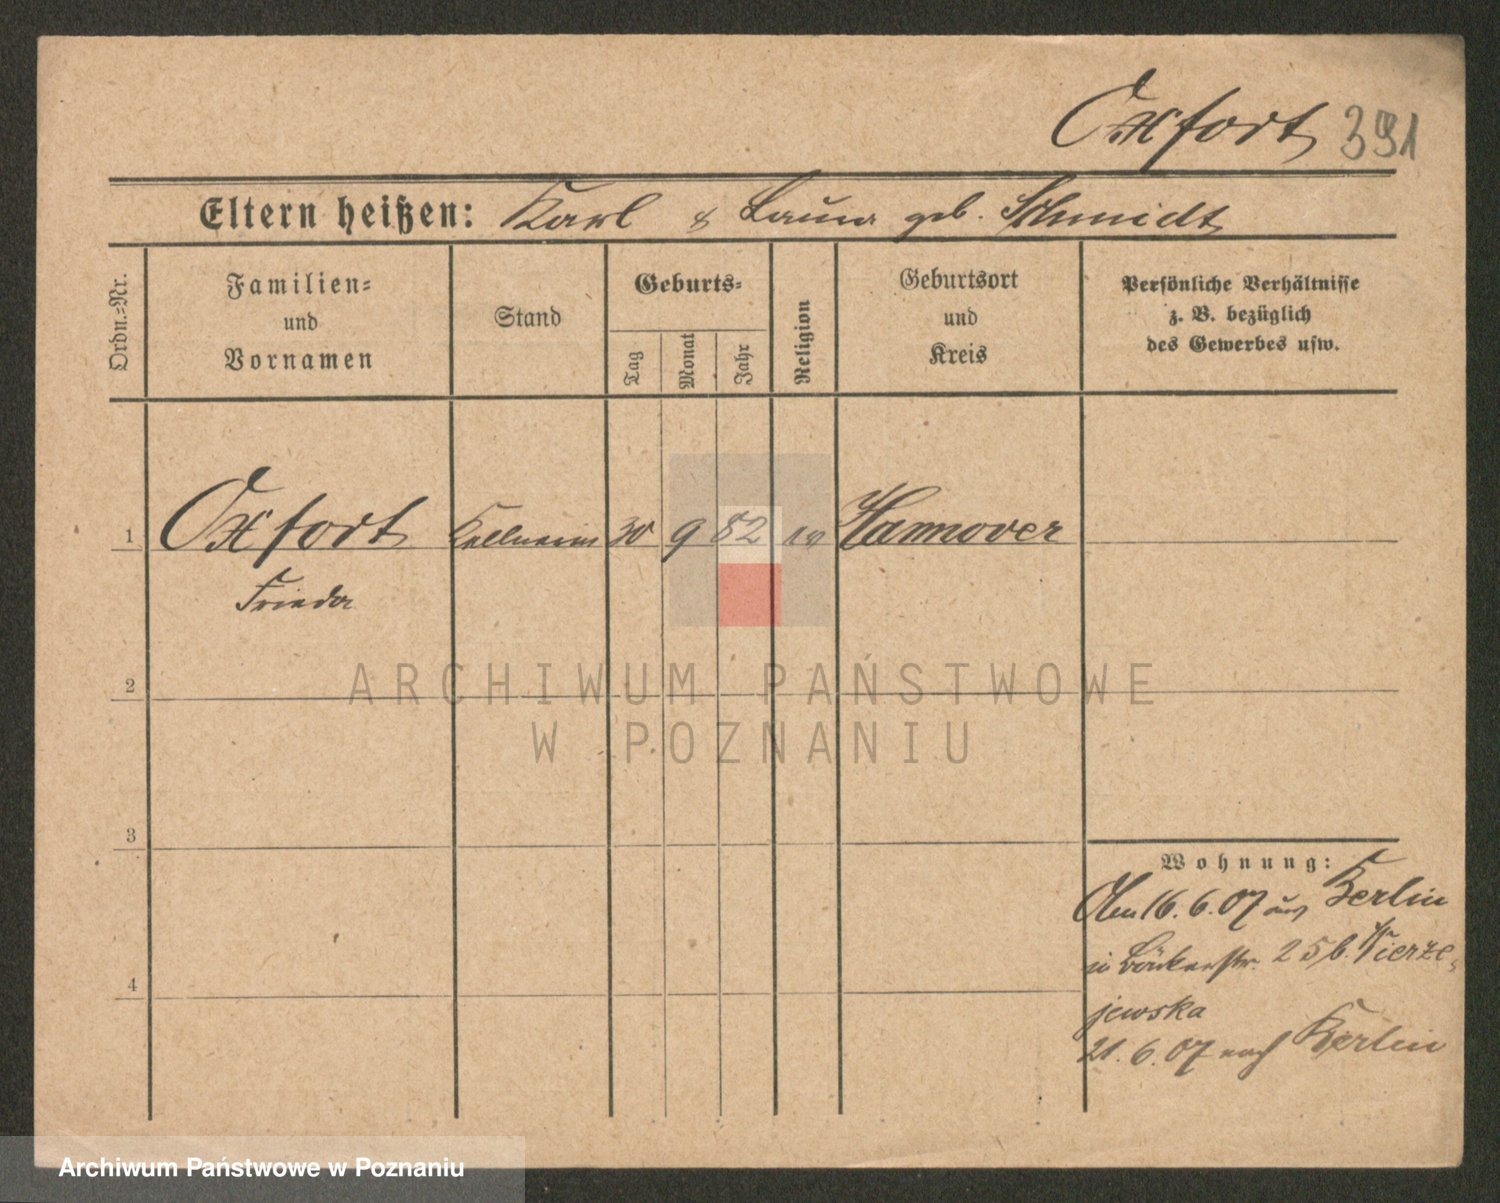 Oxfort 391
Eltern heißen: Karl & Laura geb. Schmidt
Ordn.=Nr.
Familien=
und
Vornamen
Stand
Geburts=
Tag
Monat
Jahr
Religion
Geburtsort
und
Kreis
Persönliche Verhältnisse
z. B. bezüglich
des Gewerbes usw.
1 Oxfort Kellnerin 30 9 82 ev Hannover
Frieda
2
3
4
Wohnung:
Am 16.6.07 aus Berlin
in Bäckerstr. 25 b. Wierze-
jewska
21.6.07 nach Berlin
ARCHIWUM PAŃSTWOWE
W POZNANIU
Archiwum Państwowe w Poznaniu